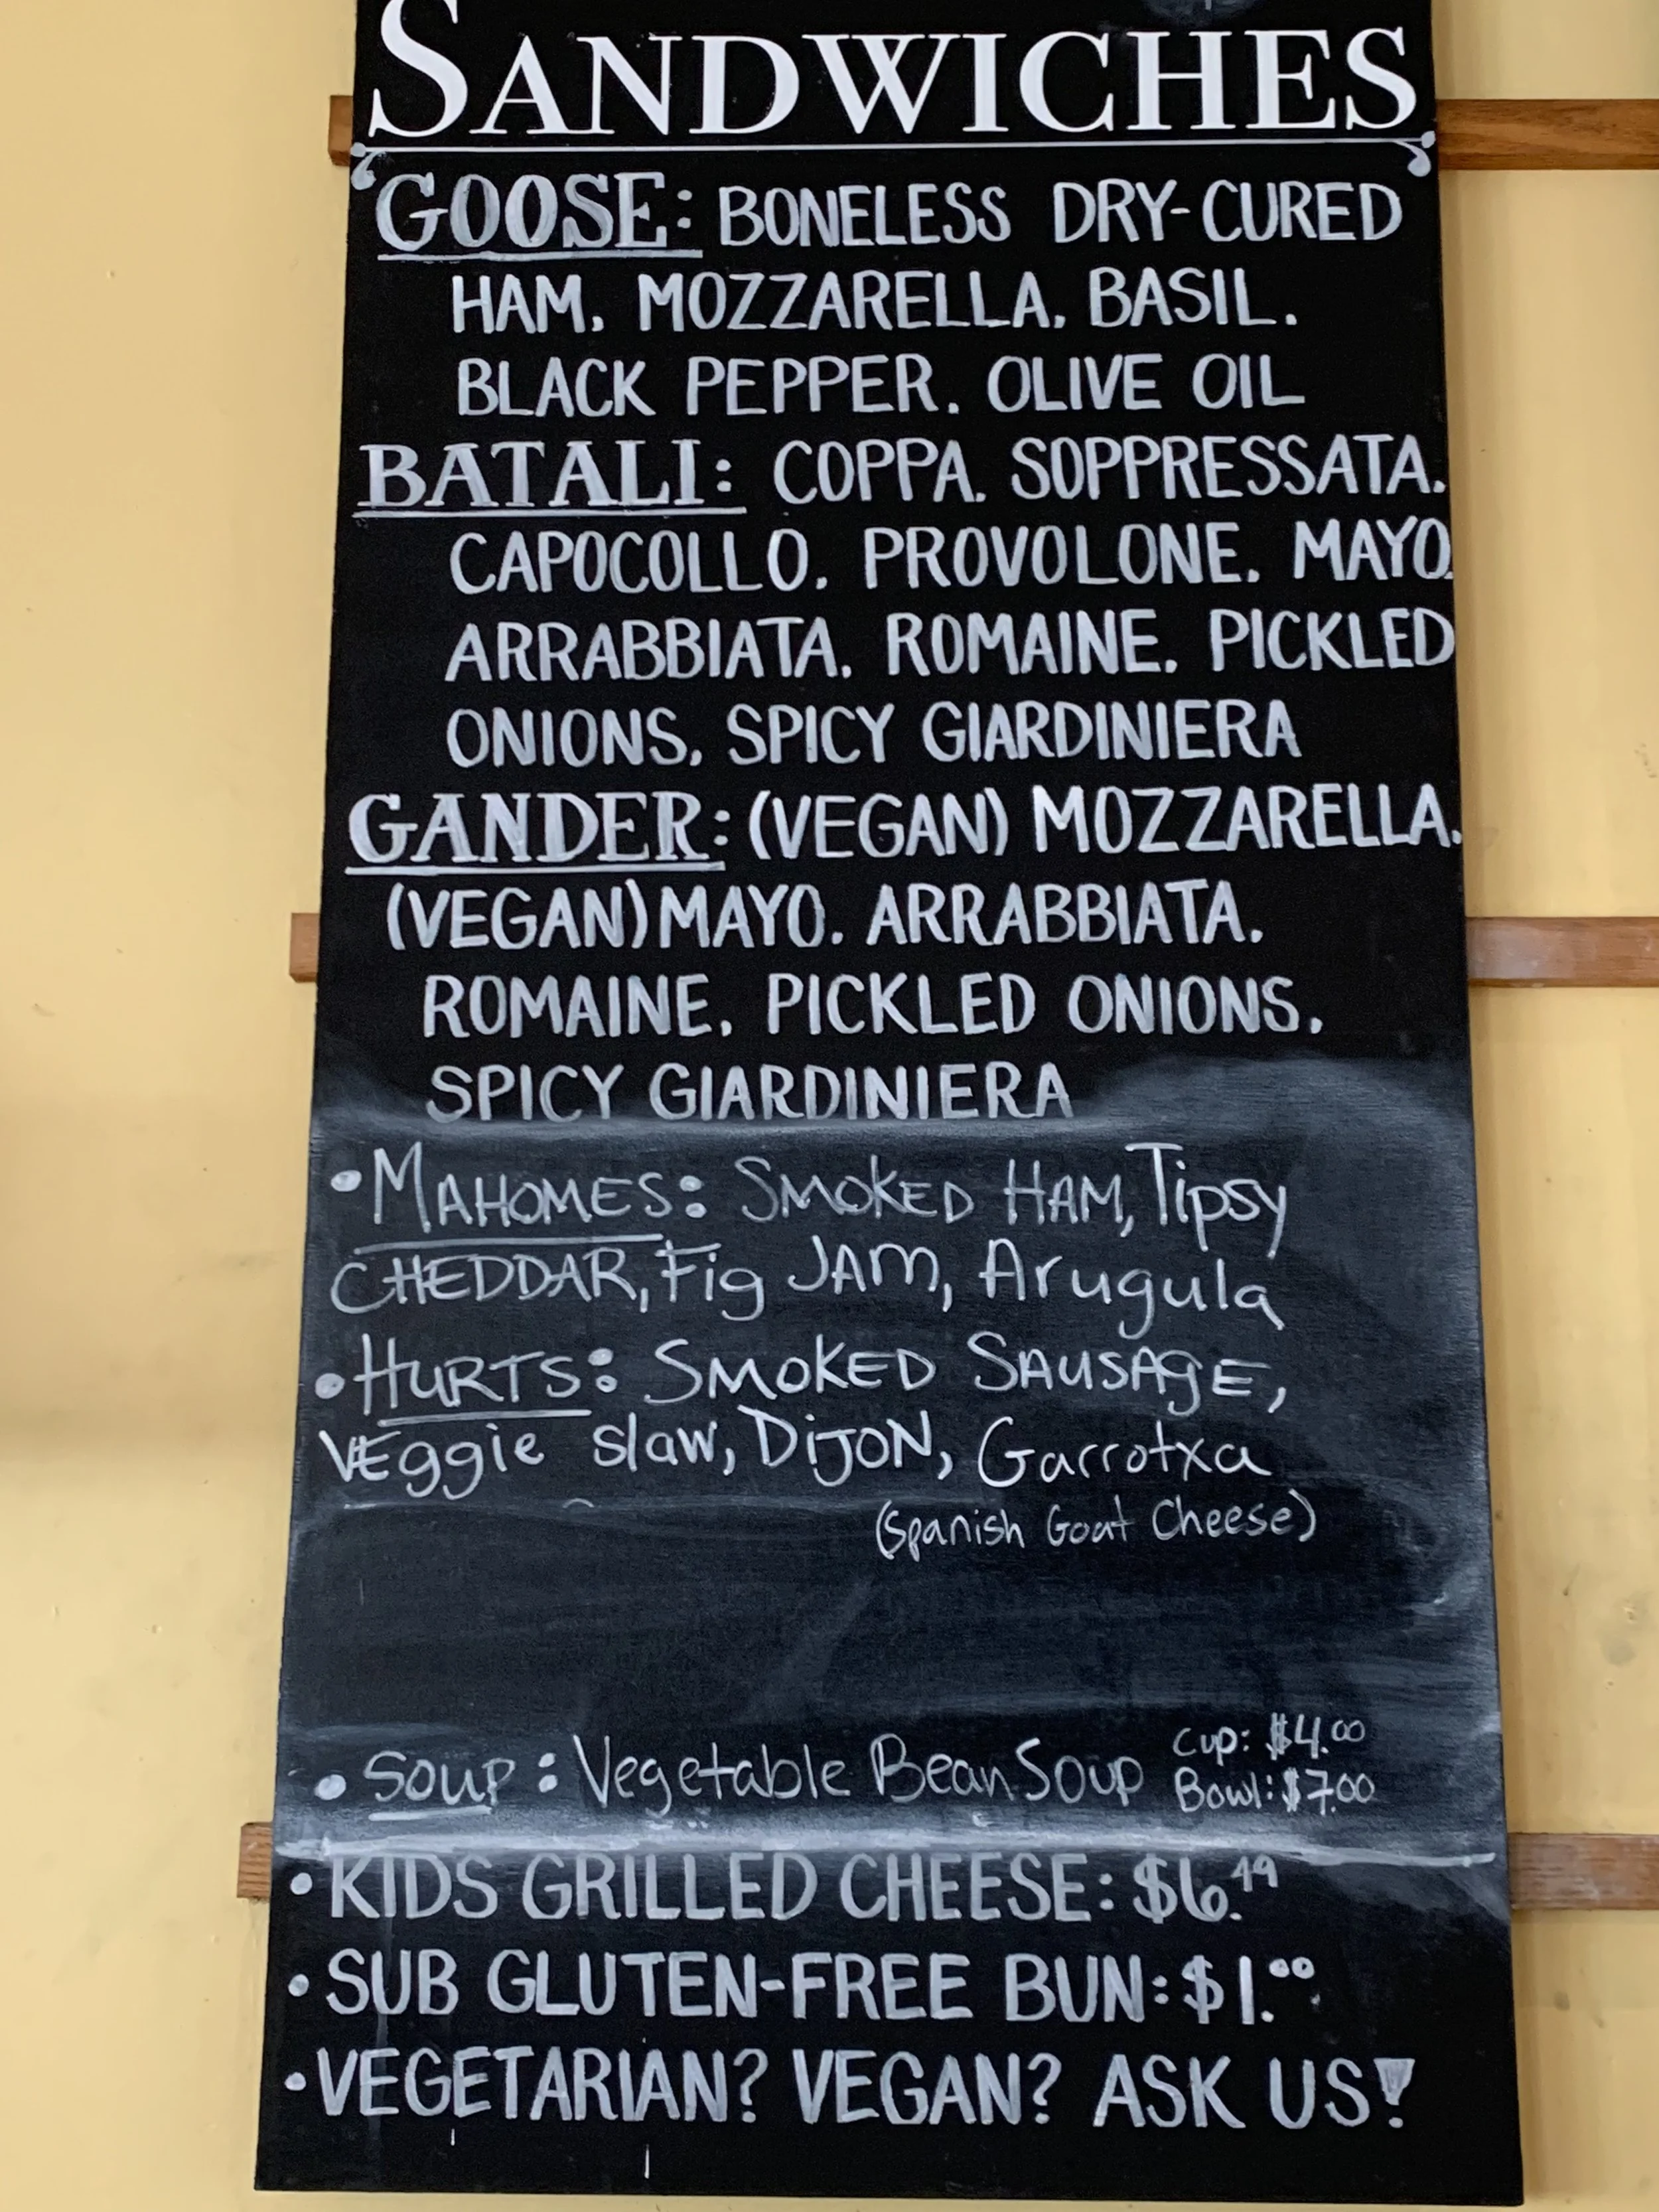 SANDWICHES
GOOSE: BONELESS DRY-CURED
HAM, MOZZARELLA, BASIL,
BLACK PEPPER, OLIVE OIL
BATALI: COPPA, SOPPRESSATA,
CAPOCOLLO, PROVOLONE, MAYO,
ARRABBIATA, ROMAINE, PICKLED
ONIONS, SPICY GIARDINIERA
GANDER: (VEGAN) MOZZARELLA,
(VEGAN) MAYO, ARRABBIATA,
ROMAINE, PICKLED ONIONS,
SPICY GIARDINIERA
• MAHOMES: SMOKED HAM, Tipsy
CHEDDAR, Fig JAM, Arugula
• HURTS: SMOKED SAUSAGE,
VEggie slaw, DIJON, Garrotxa
(Spanish Goat Cheese)
• Soup: Vegetable Bean Soup Cup: $4.00
Bowl: $7.00
• KIDS GRILLED CHEESE: $6.49
• SUB GLUTEN-FREE BUN: $1.00
• VEGETARIAN? VEGAN? ASK US!